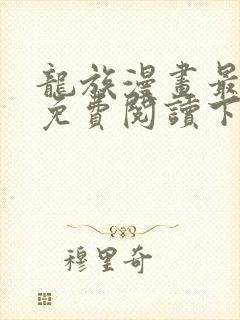 龍族漫畫最
免費閱讀下
穆里奇